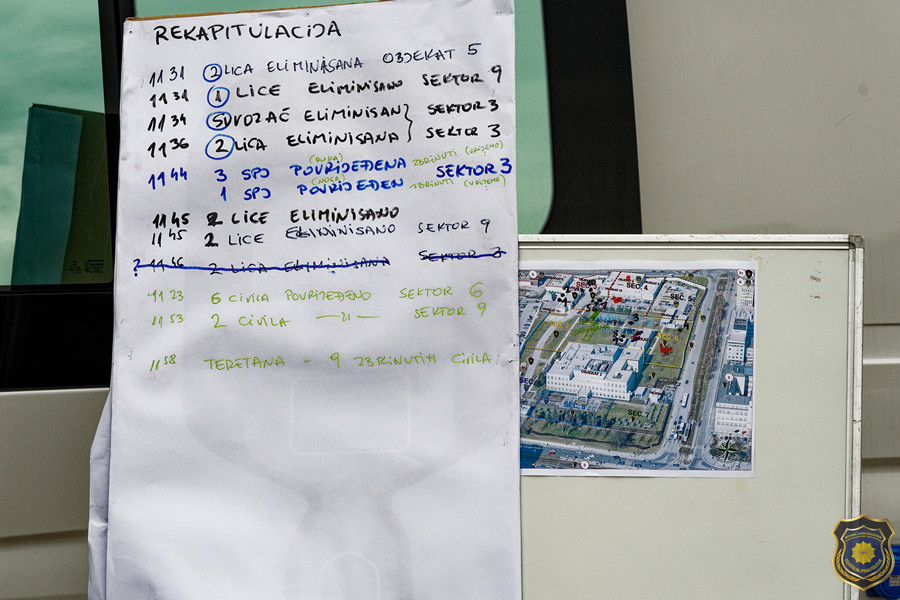 REKAPITULACIJA
11 31 2 LICA ELIMINISANA OBJEKAT 5
11 31 1 LICE ELIMINISANO SEKTOR 9
11 34 VOZAČ ELIMINISAN SEKTOR 3
11 36 2 LICA ELIMINISANA SEKTOR 3
(RUKA) ZBRINUTI (VRIJEME)
11 44 3 SPJ POVRIJEĐENA SEKTOR 3
(NOGA) ZBRINUTI (VRIJEME)
1 SPJ POVRIJEĐEN
11 45 2 LICE ELIMINISANO
11 45 2 LICE ELIMINISANO SEKTOR 9
? 11 56 2 LICA ELIMINISANA SEKTOR 3
11 23 6 CIVILA POVRIJEĐENO SEKTOR 6
11 53 2 CIVILA —21— SEKTOR 9
11 58 TERETANA - 9 ZBRINUTIH CIVILA
SEC. 4
SEC. 5
OBJEKAT 2
SEC. 7